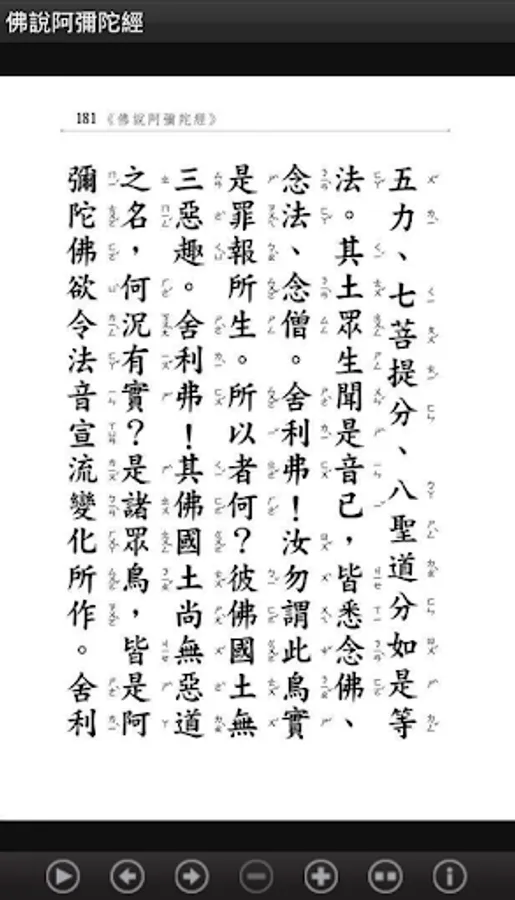 佛說阿彌陀經
181 《佛說阿彌陀經》
五力、七菩提分、八聖道分如是等
法。其土眾生聞是音已，皆悉念佛、
念法、念僧。舍利弗！汝勿謂此鳥實
是罪報所生。所以者何？彼佛國土無
三惡趣。舍利弗！其佛國土尚無惡道
之名，何況有實？是諸眾鳥，皆是阿
彌陀佛欲令法音宣流變化所作。舍利